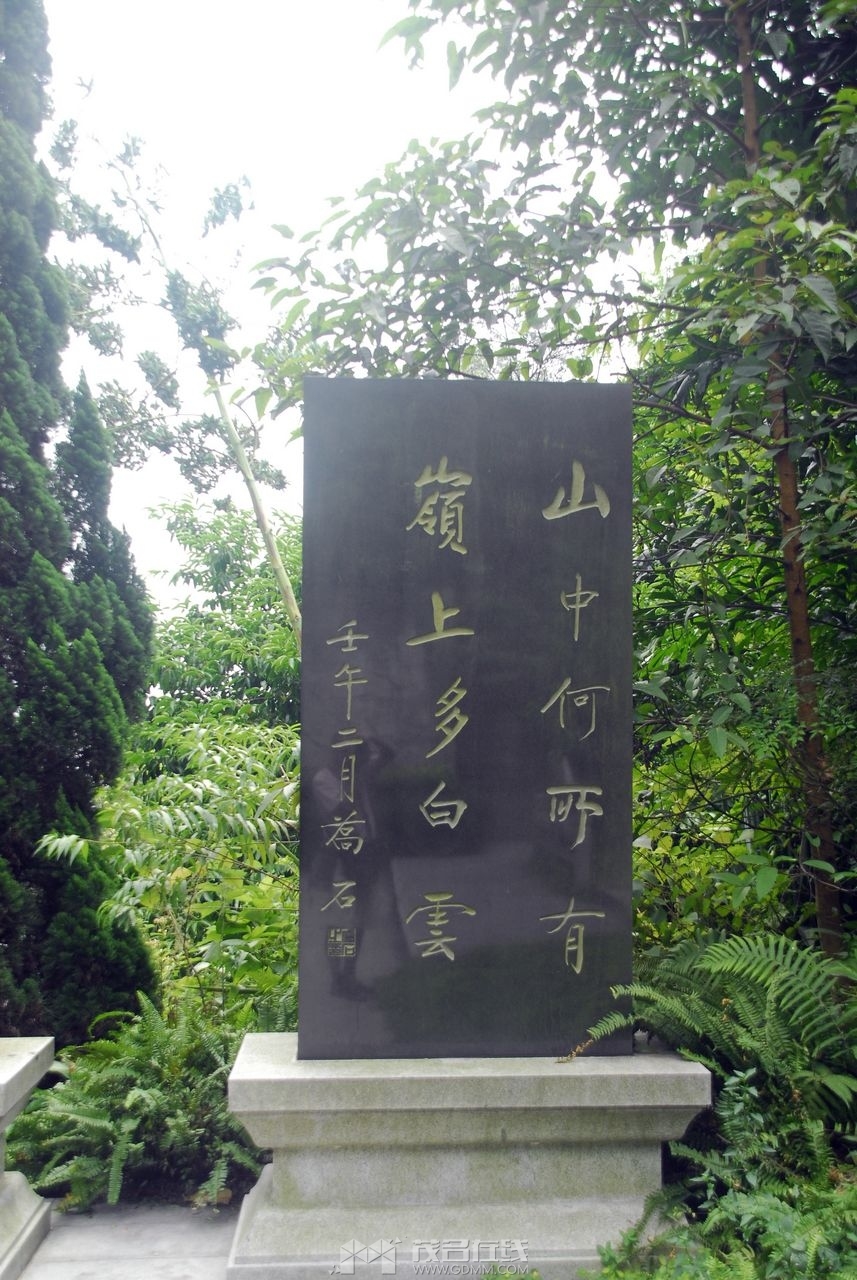 山中何所有
嶺上多白雲
壬午二月喬石
茂名在线
WWW.GDMM.COM